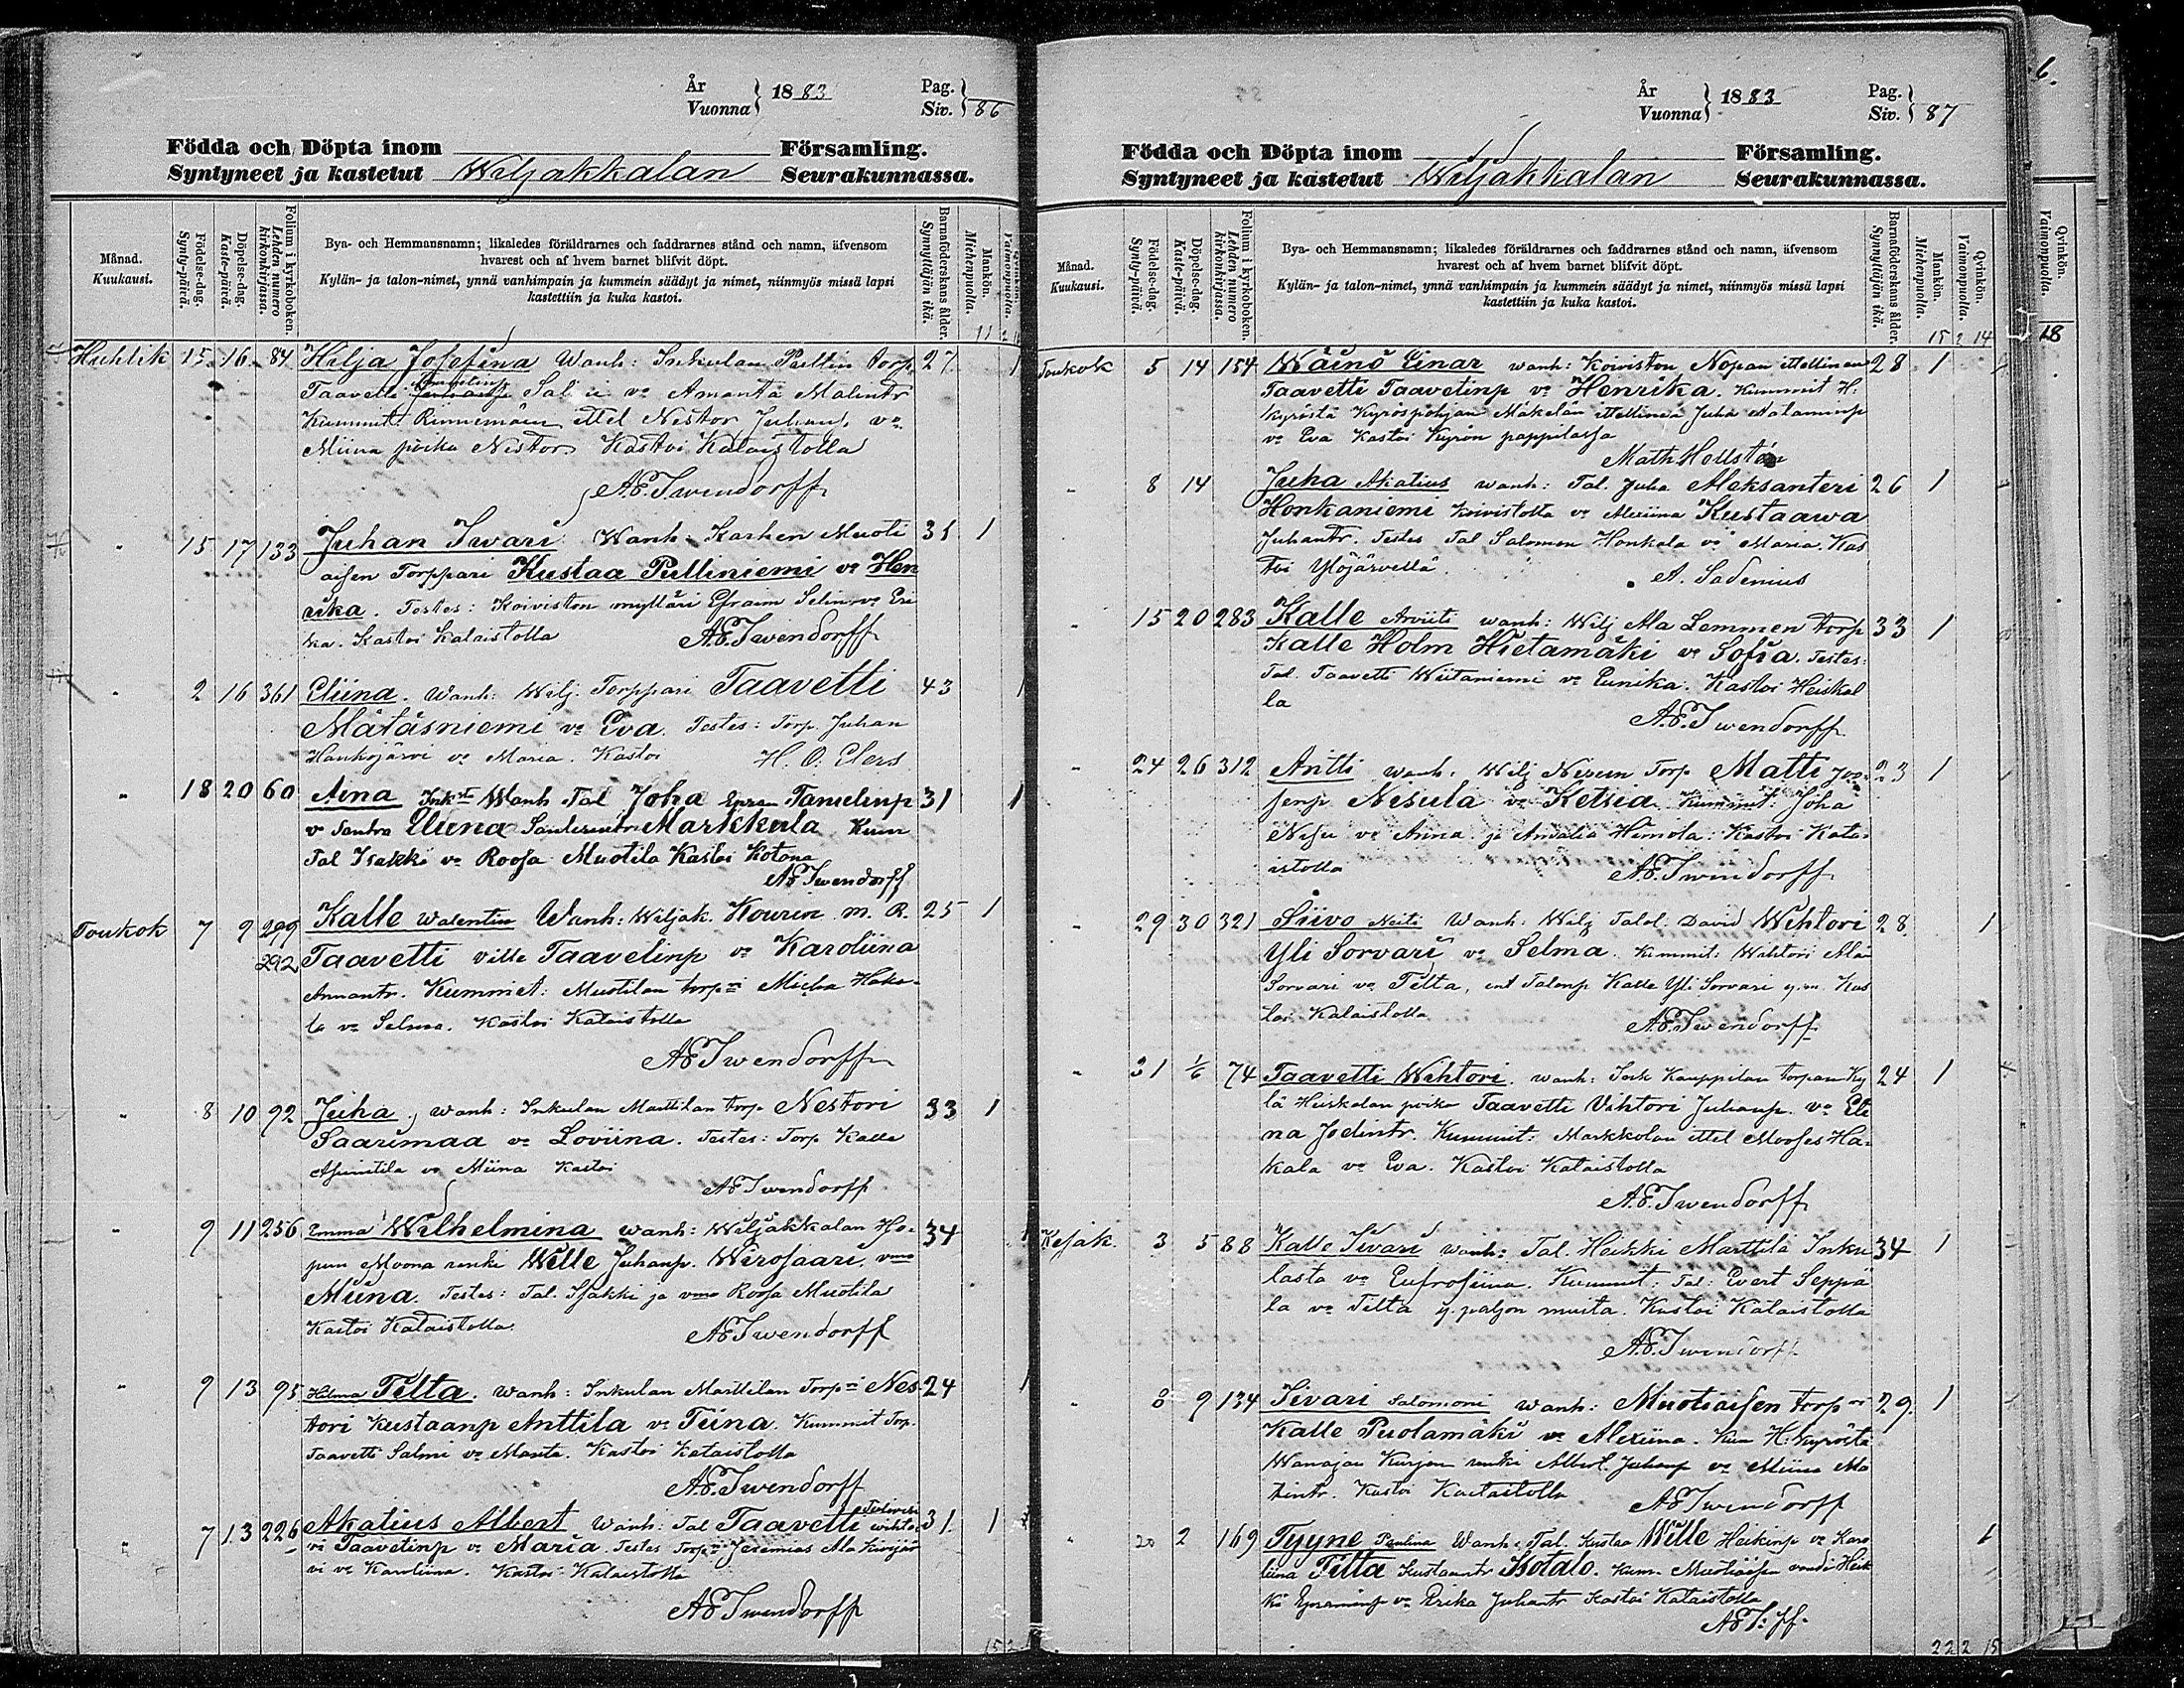 År
Vuonna } 1883 Pag.
Siv. } 86
Födda och Döpta inom Församling.
Syntyneet ja kastetut Wiljakkalan Seurakunnassa.
Månad.
Kuukausi.
Födelse-dag.
Synty-päivä.
Döpelse-dag.
Kaste-päivä.
Folium i kyrkoboken.
Lehden numero kirkonkirjassa.
Bya- och Hemmansnamn; likaledes föräldrarnes och faddrarnes stånd och namn, äfvensom
hvarest och af hvem barnet blifvit döpt.
Kylän- ja talon-nimet, ynnä vanhimpain ja kummein säädyt ja nimet, niinmyös missä lapsi
kastettiin ja kuka kastoi.
Barnaföderskans ålder.
Synnyttäjän ikä.
Mankön.
Miehenpuolta.
11 2
Huhtik 15 16 84 Hilja Josefina Wanh: Inkulan Pultin torp. 27 1
Taavetti v:o Amanta Malintr
Kummit: Rinnemäen ittel Nestor Juhanp. v:o
Miina poika Nestor. Kastoi Kalaistolla
A.E. Twendorff
" 15 17 133 Juhan Iivari Wanh. Karhen Muoti 31 1
aisen Torppari Kustaa Pulliniemi v:o Hen
rika. Testes: Koiviston mylläri Efraim Selin v:o Eri
ka. Kastoi Kalaistolla A.E. Twendorff
" 2 16 361 Eliina. Wanh: Wilj. Torppari Taavetti 43 1
Mätäsniemi v:o Eva. Testes: Torp. Juhan
Hanhojärvi v:o Maria. Kastoi H. O. Elers
" 18 20 60 Aina Wanh Tal Joha Tanelinp 31 1
v Sandra Eliina Markkula Kum
Tal Isakki v:o Roosa Muotila Kastoi Kotona
A E Twendorff
Toukok 7 9 299 Kalle Walentin Wanh: Wiljak. Kourun m. R. 25 1
292 Taavetti Ville Taavetinp v:o Karoliina
Annantr. Kummit: Muotilan torp:ri Micha Hako-
la v:o Selma. Kastoi Kalaistolla
A E Twendorff
" 8 10 92 Juha, wanh: Inkulan Marttilan torp. Nestori 33 1
Saarimaa v:o Loviina. Testes: Torp Kalle
v:o Miina Kastoi
A E Twendorff
" 9 11 256 Emma Wilhelmina wanh: Wiljakkalan Ho-
pun Moona renki Wille Juhanp. Wirosaari, v:mo 34 1
Miina. Testes: Tal. Isakki ja v:mo Roosa Muotila
Kastoi Kalaistolla. A E Twendorff
" 9 13 95 Hilma Tilta. wanh: Inkulan Marttilan Torp:ri Nes- 24 1
tori Kustaanp Anttila v:o Tiina. Kummit Torp.
Taavetti Salmi v:o Manta. Kastoi Kataistolla
A.E. Twendorff
" 7 13 226 Akatius Albert Wanh: Tal Taavetti Wihto- 31. 1
ri Taavetinp v:o Maria. Testes Torp:ri Jeremias Ala Kirvijär
vi v:o Karoliina. Kastoi Kalaistolla
A E Twendorff
15 2
År
Vuonna } 1883 Pag.
Siv. } 87
Födda och Döpta inom Församling.
Syntyneet ja kastetut Wiljakkalan Seurakunnassa.
Månad.
Kuukausi.
Födelse-dag.
Synty-päivä.
Döpelse-dag.
Kaste-päivä.
Folium i kyrkoboken.
Lehden numero kirkonkirjassa.
Bya- och Hemmansnamn; likaledes föräldrarnes och faddrarnes stånd och namn, äfvensom
hvarest och af hvem barnet blifvit döpt.
Kylän- ja talon-nimet, ynnä vanhimpain ja kummein säädyt ja nimet, niinmyös missä lapsi
kastettiin ja kuka kastoi.
Barnaföderskans ålder.
Synnyttäjän ikä.
Mankön.
Miehenpuolta.
Qvinkön.
Vaimonpuolta.
15 2 14
Toukok 5 14 154 Wäinö Einar wanh: Koiviston Nopan ittellinen 28 1
Taavetti Taavetinp v:o Henrika. Kummit H:
kyröstä Kyröspohjan Mäkelän ittellinen Juha Aataminp
v:o Eva Kastoi Kyrön pappilassa
Math Hellstén
" 8 14 Juha Akatius wanh: Tal. Juha Aleksanteri 26 1
Honkaniemi Koivistolta v:o Alexiina Kustaawa
Juhantr. Testes Tal Salomon Honkala v:o Maria. Kas
toi Ylöjärvellä. A. Sadenius
" 15 20 283 Kalle Arviiti wanh: Wilj Ala Lemmen torp 33 1
Kalle Holm Hietamäki v:o Sofia. Testes:
Tal. Taavetti Wiitaniemi v:o Eunika. Kastoi Heiskal
la
A.E. Twendorff
" 24 26 312 Antti wanh: Wilj Nisun Torp Matti Joo- 23 1
senp Nisula v:o Ketsia Kummit: Joha
Nisu v:o Anna ja Amalia Himola: Kastoi Kata-
istolla A.E. Twendorff
" 29 30 321 Siivo Neiti Wanh: Wilj Talol. David Wihtori 28 1
Yli Sorvari v:o Selma. Kummit: Wihtori Ala
Sorvari v:o Tilta, ent Talonp Kalle Yli Sorvari y. m. Kas
toi Kalaistolla A.E. Twendorff
" 31 1/6 74 Taavetti Wihtori. wanh: Ink Kauppilan torpan Ky 24 1
lä Heiskalan poika Taavetti Vihtori Juhanp. v:o Eli
na Joelintr. Kummit: Markkolan ittel Mooses Hä-
kala v:o Eva. Kastoi Kataistolla
A.E. Twendorff
Kesäk. 3 5 88 Kalle Iivari wanh: Tal. Heikki Marttila Inku 34 1
lasta v:o Eufrosiina. Kummit: Tal: Evert Seppä
la v:o Tilta y. paljon muita. Kastoi Kalaistolla
A.E. Twendorff
" 8 9 134 Iivari Salomoni wanh: Muotiaisen torp:ri 29. 1
Kalle Puolamäki v:o Alexiina. Kum H:kyröstä
Wanajan Kurjen renki Albert Juhanp v:o Miina Ma
tintr. Kastoi Kataistolla A E Twendorff
" 20 2 169 Tyyne Paulina Wanh: Tal. Kustaa Wille Heikinp v:o Karo 1
liina Tilta Kustaantr Kotalo. Kum. Muotiaisen vouti Heik
ki v:o Erika Juhantr Kastoi Kataistolla
A E T:ff.
22 2 15
6.
Qvinkön.
Vaimonpuolta.
18